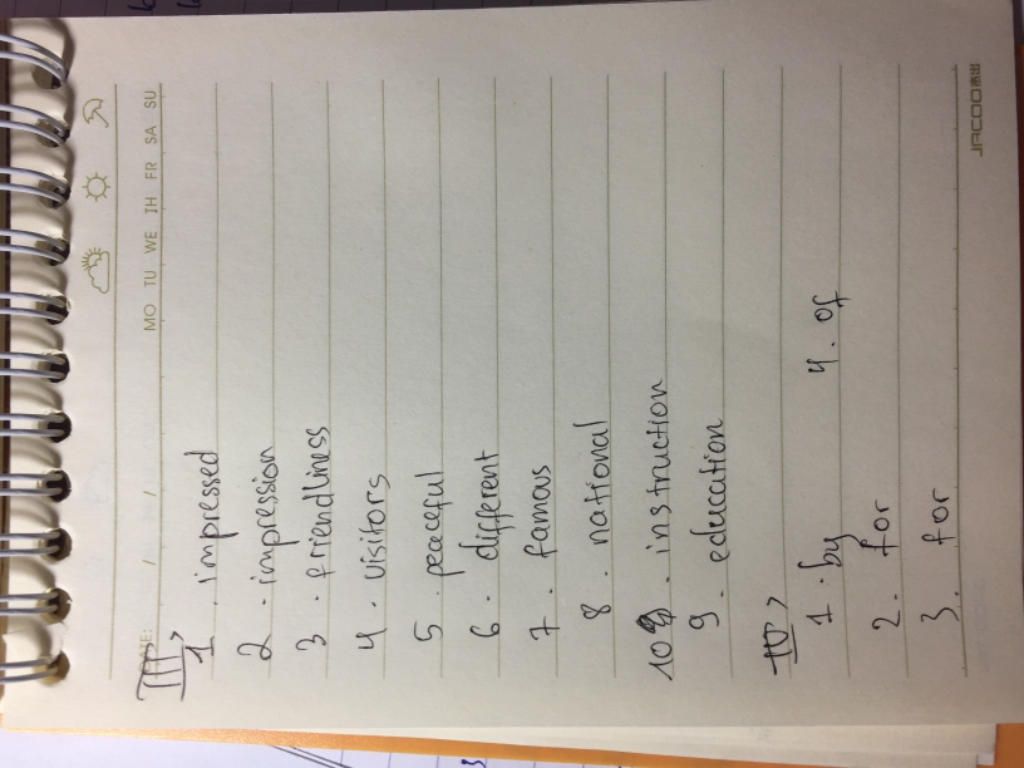 DATE: / /
MO TU WE TH FR SA SU
III>
1. impressed
2. impression
3. friendliness
4. visitors
5. peaceful
6. different
7. famous
8. national
10. instruction
9. education
IV>
1. by 4. of
2. for
3. for
JACOO